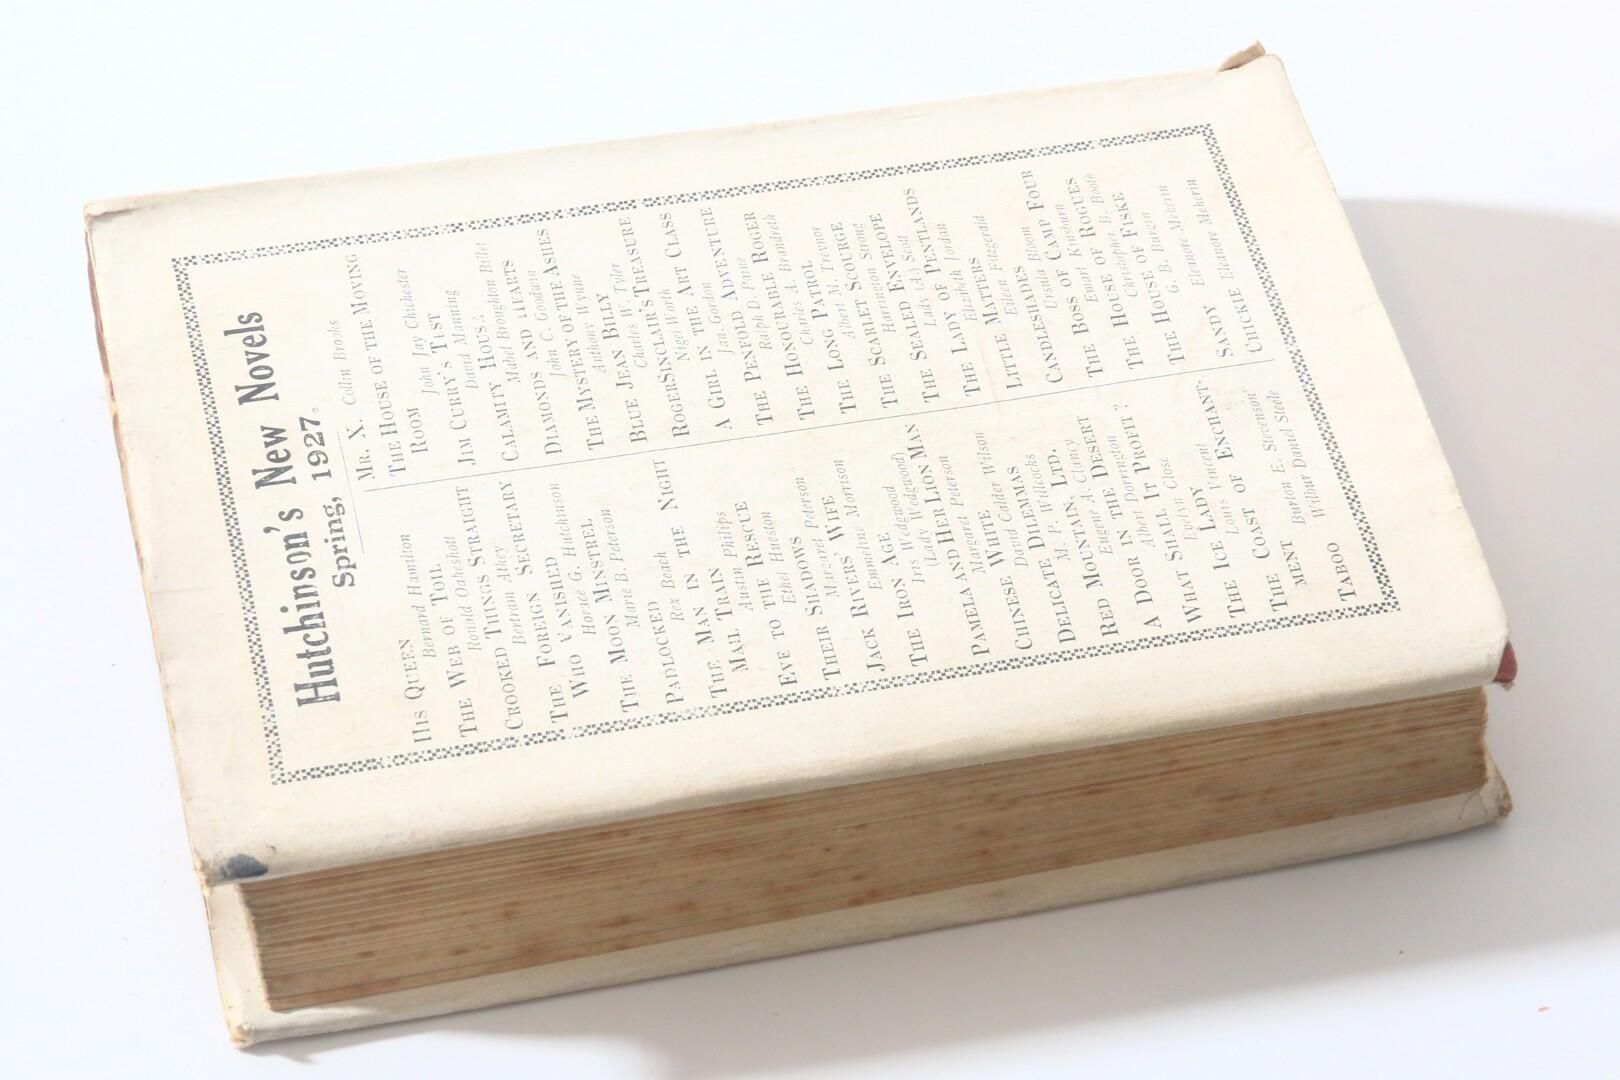 Hutchinson's New Novels
Spring, 1927.
HIS QUEEN
Bernard Hamilton
THE WEB OF TOIL
Ronald Oakeshott
CROOKED THINGS STRAIGHT
Bertram Athey
THE FOREIGN SECRETARY
WHO VANISHED
Horace G. Hutchinson
THE MOON MINSTREL
Marie B. Peterson
PADLOCKED
Rex Beach
THE MAN IN THE NIGHT
MAIL TRAIN
Austin Philips
EVE TO THE RESCUE
Ethel Hueston
THEIR SHADOWS
Margaret Peterson
JACK RIVERS' WIFE
Emmeline Morrison
THE IRON AGE
Iris Wedgwood
(Lady Wedgwood)
PAMELA AND HER LION MAN
Margaret Peterson
CHINESE WHITE
David Calder Wilson
DELICATE DILEMMAS
M. P. Willcocks
RED MOUNTAIN, LTD.
Eugene A. Clancy
A DOOR IN THE DESERT
Albert Dorrington
WHAT SHALL IT PROFIT?
Evelyn Close
THE ICE LADY
Louis Vincent
THE COAST OF ENCHANT-
MENT
Burton E. Stevenson
TABOO
Wilbur Daniel Steele
MR. X.
Collin Brooks
THE HOUSE OF THE MOVING
ROOM
John Jay Chichester
JIM CURRY'S TEST
David Manning
CALAMITY HOUSE
Mabel Broughton Billet
DIAMONDS AND HEARTS
John C. Goodwin
THE MYSTERY OF THE ASHES
Anthony Wynne
BLUE JEAN BILLY
Charles W. Tyler
ROGER SINCLAIR'S TREASURE
Nigel Worth
A GIRL IN THE ART CLASS
Jan. Gordon
THE PENFOLD ADVENTURE
Ralph D. Paine
THE HONOURABLE ROGER
Charles A. Brandreth
THE LONG PATROL
Albert M. Treynor
THE SCARLET SCOURGE
Harrington Strong
THE SEALED ENVELOPE
Lady (A.) Scott
THE LADY OF PENTLANDS
Elizabeth Jordan
LITTLE MATTERS
Eileen Fitzgerald
CANDLESHADES
Ursula Bloom
THE BOSS OF CAMP FOUR
Emart Kinsburn
THE HOUSE OF ROGUES
Christopher B. Booth
THE HOUSE OF FISKE
G. B. Burgin
SANDY
Eleanore Meherin
CHICKIE
Eleanore Meherin